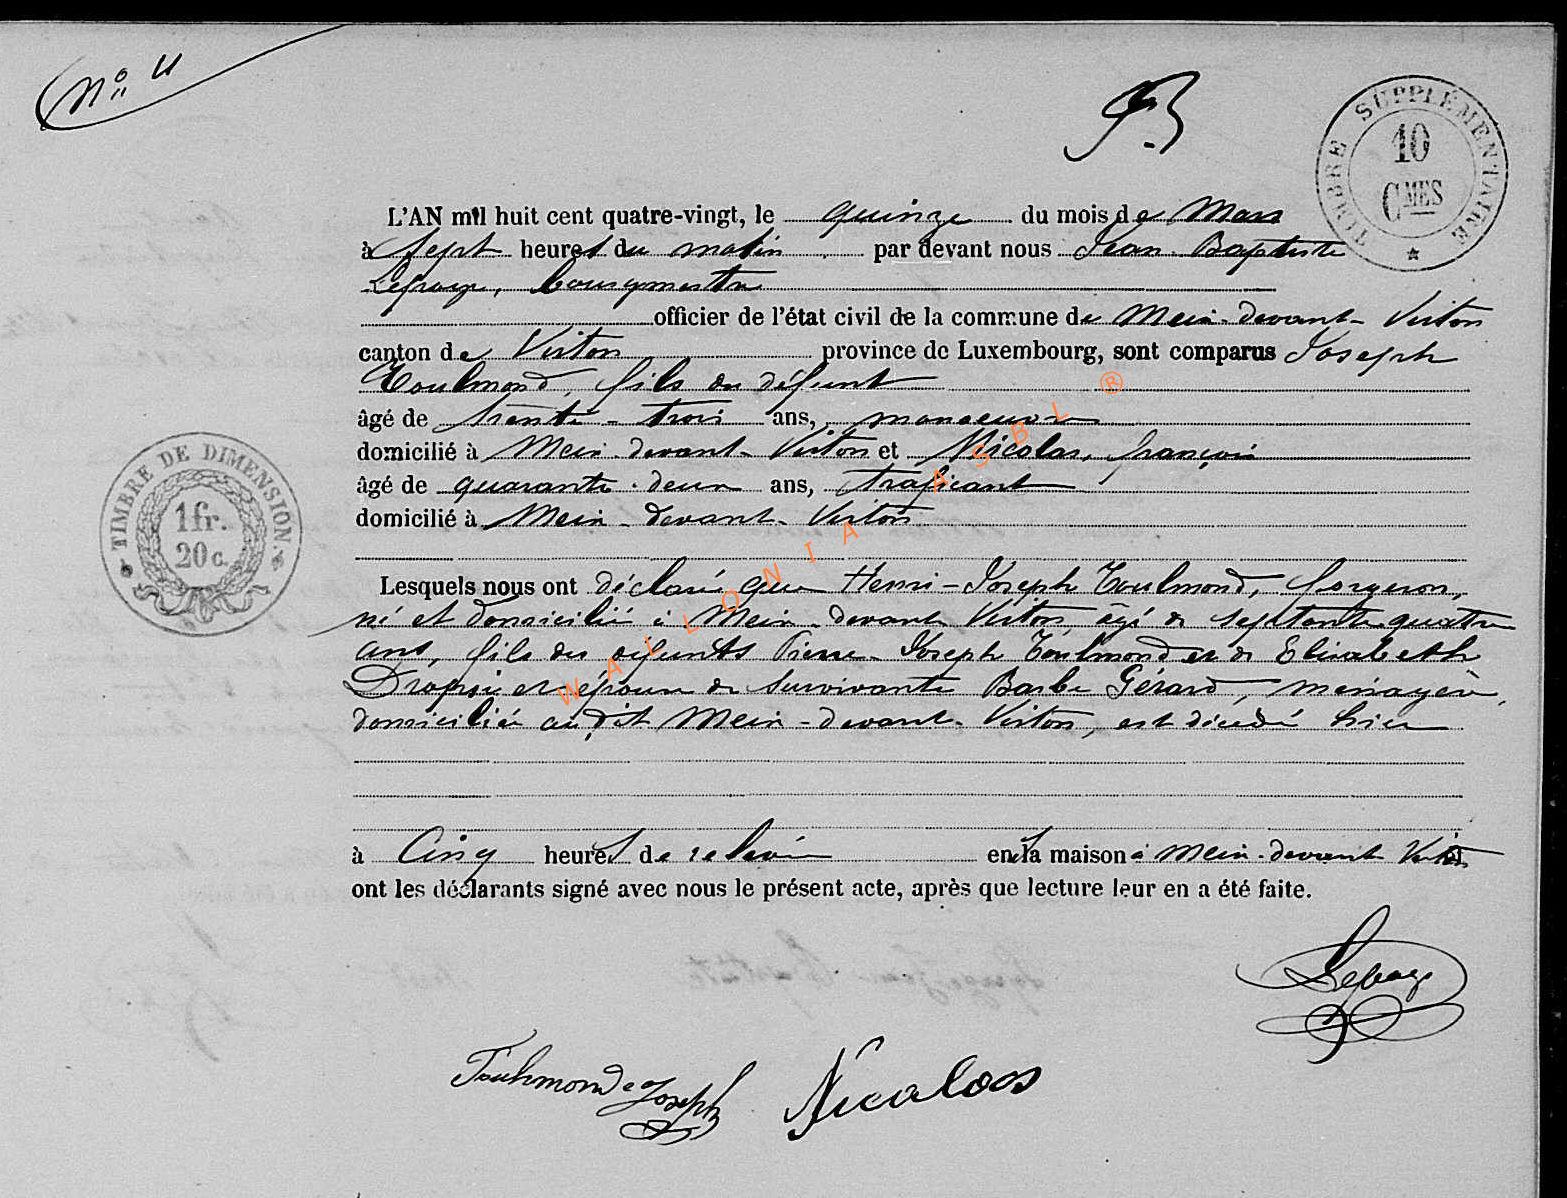 N° 4
TIMBRE SUPPLÉMENTAIRE
10
CMES
L'AN mil huit cent quatre-vingt, le quinze du mois de Mars
à sept heures du matin par devant nous Jean-Baptiste
Lepage, bourgmestre
officier de l'état civil de la commune de Meix-devant-Virton
canton de Virton province de Luxembourg, sont comparus Joseph
Toulmond, fils du défunt
âgé de trente-trois ans, manoeuvre
domicilié à Meix-devant-Virton et Nicolas, françois
âgé de quarante-deux ans, traficant
domicilié à Meix-devant-Virton
TIMBRE DE DIMENSION.
1fr.
20 c.
Lesquels nous ont déclaré que Henri-Joseph Toulmond, forgeron,
né et domicilié à Meix-devant Virton, âgé de septante quatre
ans, fils des défunts Pierre-Joseph Toulmond et de Elisabeth
et époux de survivante Barbe Gérard, ménagère,
domiciliée au dit Meix-devant-Virton, est décédé hier
à Cinq heures de relevée en sa maison à Meix-devant Virton
ont les déclarants signé avec nous le présent acte, après que lecture leur en a été faite.
Lepage
Toulmonde Joseph Nicolas
WALLONIA ASBL ®